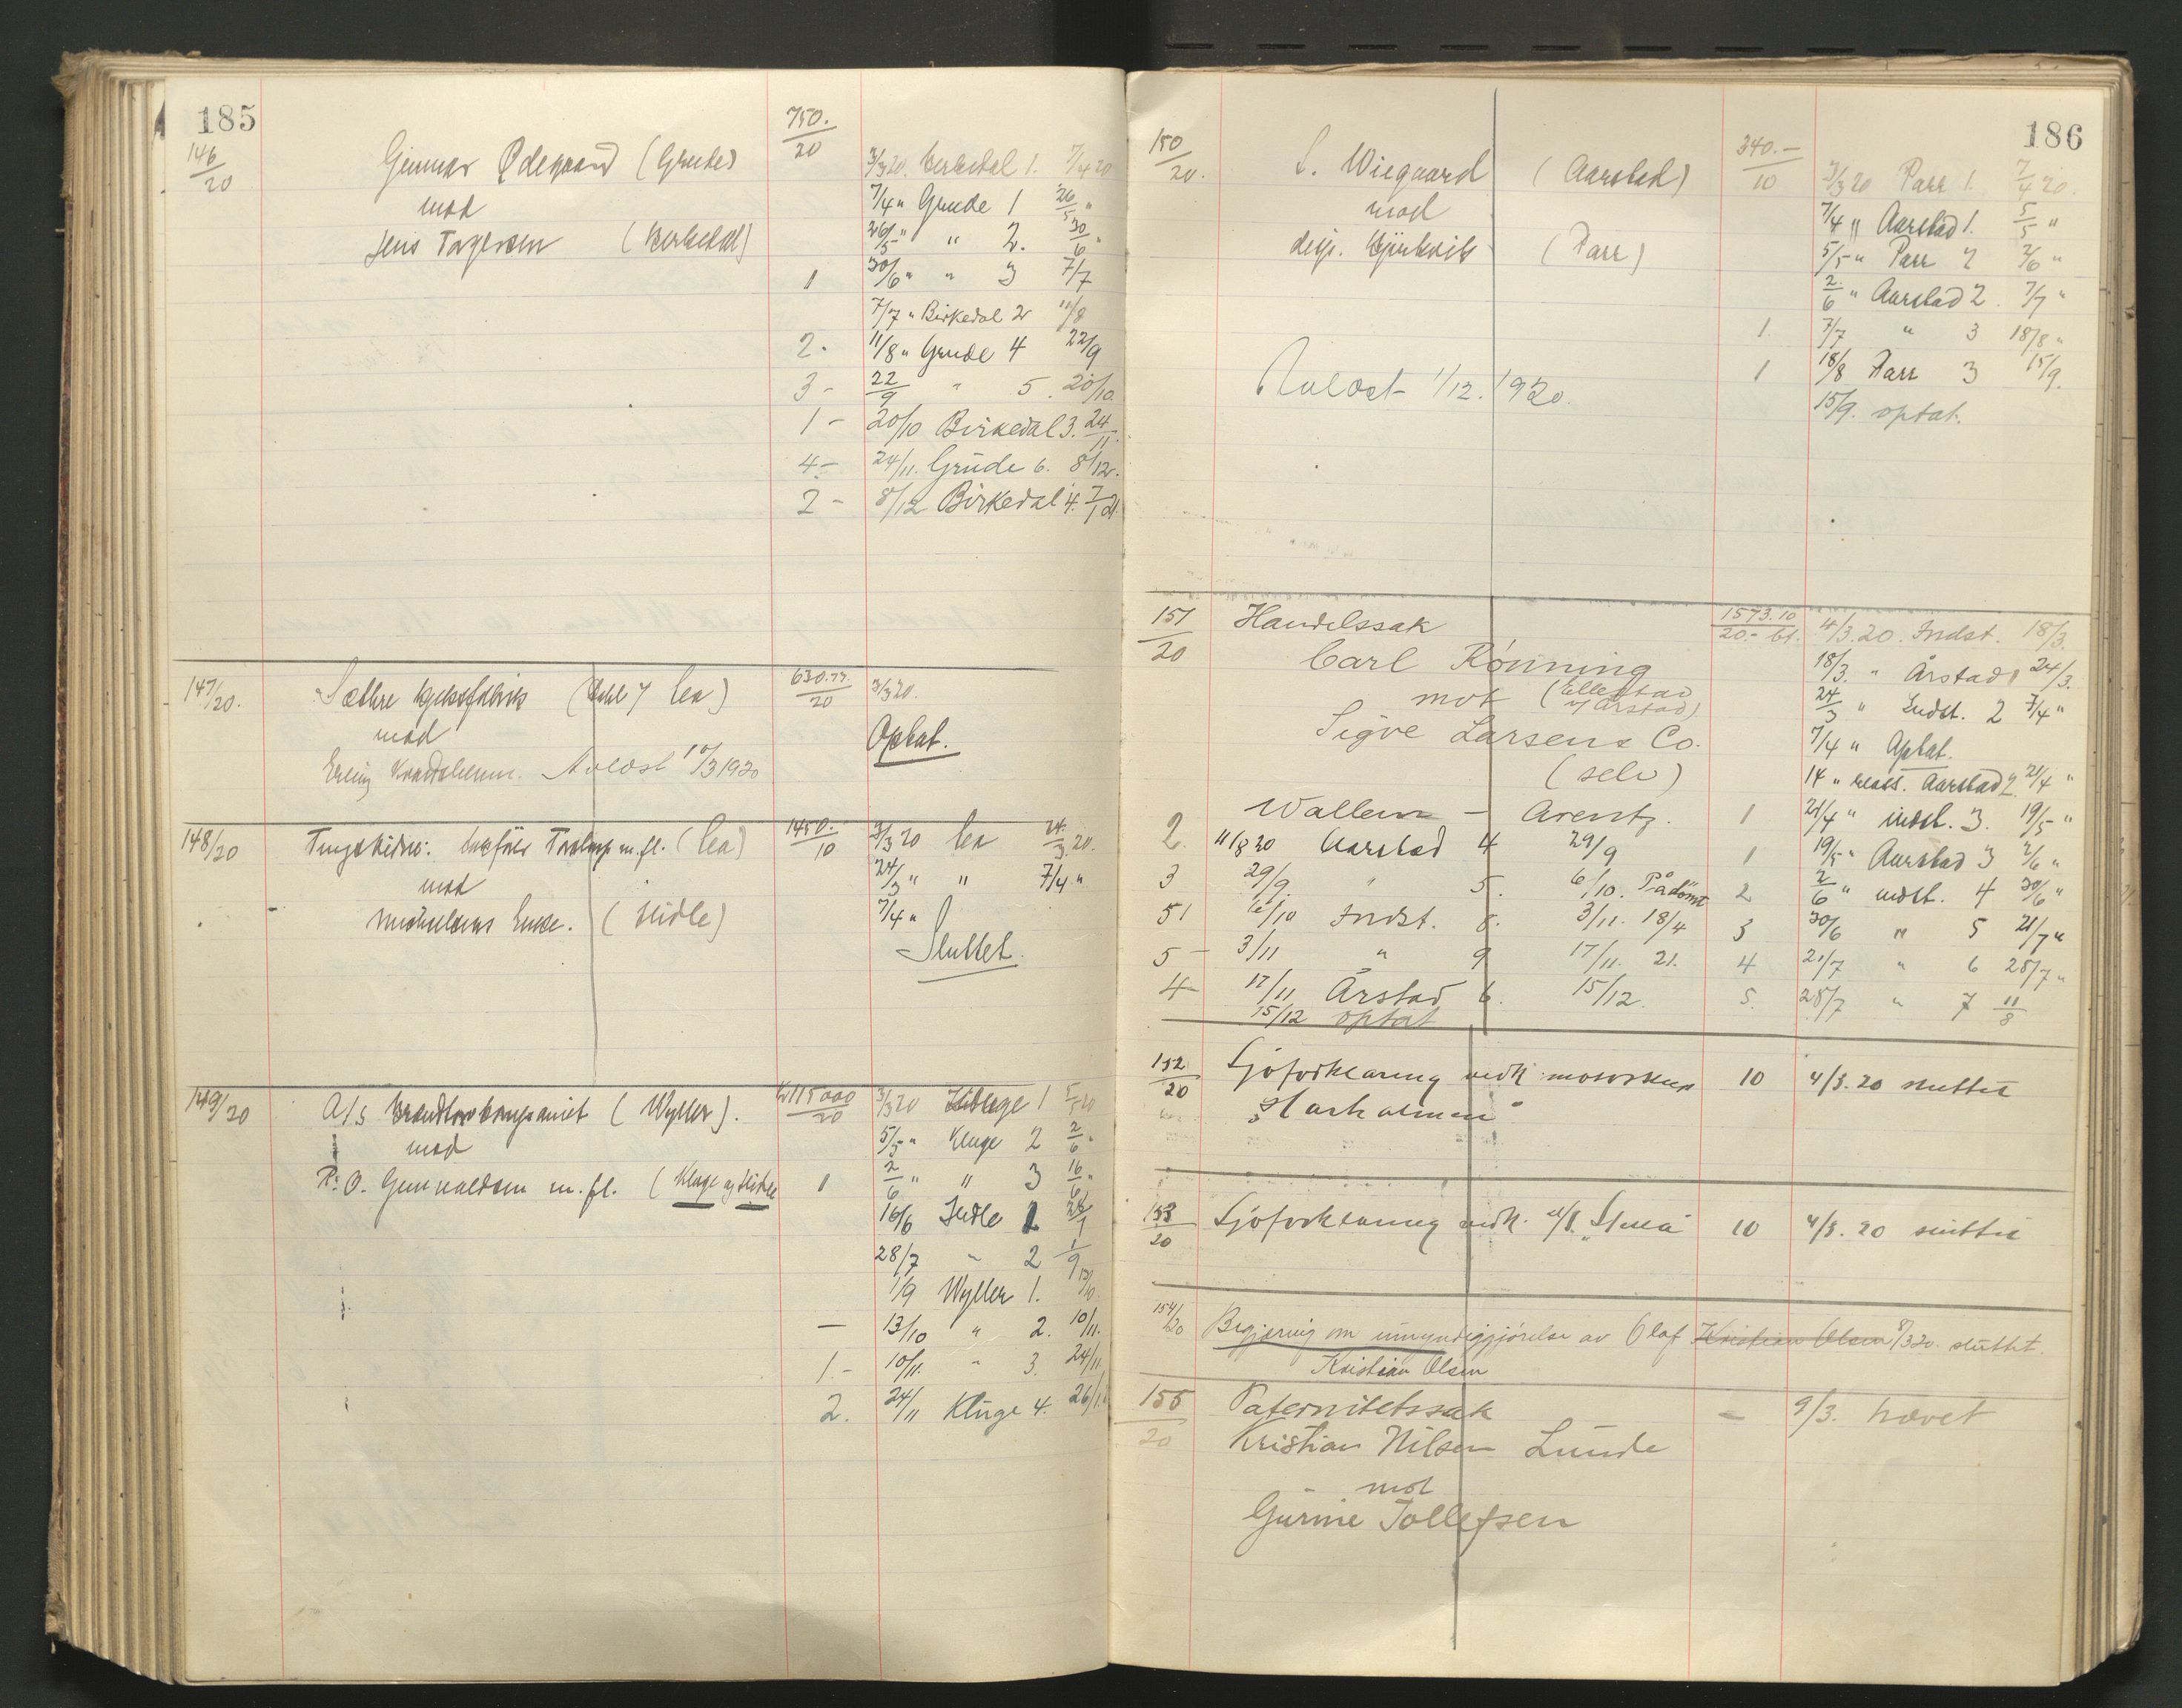 185
146/20
750.-/20
Gunnar Ødegaard (Grude)
mod
Jens Torgersen (Berkedal)
3/3 20. Berkedal 1. 7/4 20
7/4 " Grude 1 26/5 "
26/5 " " 2. 30/6 "
1 30/6 " " 3 7/7
7/7 " Birkedal 2 11/8
2. 11/8 " Grude 4 22/9
3 - 22/9 " 5. 20/10.
1 - 20/10 Birkedal 3. 24/11.
4 - 24/11. Grude 6. 8/12.
2 - 8/12 Birkedal 4. 7/1 21
147/20. Sætre kjeksfabrik ( Lea) 630.77/20 3/3 20.
mod
Optat.
Erling Kvadsheim. Avlæst 10/3 1920
148/20 m.fl. (Lea) 1450.-/10 3/3 20 Lea 24/3 20.
mod
24/3 " " 7/4 "
Michaelsens Enke. (Hidle) 7/4 "
Sluttet.
149/20 A/S kompaniet (Wyller). Kr 115000/20 3/3 20 Kluge 1 5/5 20
mod
5/5 " Kluge 2 2/6 "
P. O. Gunvaldsen m.fl. (Kluge og Hidle 1 2/6 " " 3 16/6 "
16/6 Hidle 1 28/7
28/7 " 2 1/9
1/9 Wyller 1. 13/10.
— 13/10 " 2. 10/11.
1. - 10/11. " 3. 24/11.
2. 24/11 Kluge 4. 26/1
186
150/20. S. Wiegaard (Aarstad) 340.-/10 3/3 20 Parr 1. 7/4 20.
mod
7/4 " Aarstad 1. 5/5 "
(Parr)
5/5 " Parr 2 2/6 "
2/6 " Aarstad 2. 7/7 "
1. 7/7 " 3 18/8 "
1 18/8 Parr 3 15/9.
Avlæst 1/12. 1920.
15/9. optat.
151/20 Handelssak 1573.10/20.- bt. 4/3.20. Indst. 18/3.
Carl Rønning
18/3. " Årstad 1 24/3.
mot (Ellestad v/ Årstad)
24/3 " Indst. 2 7/4 "
Sigve Larsen & Co.
7/4 " Optat.
(selv)
14 " reass. Aarstad 2 21/4 "
Wallem - Arentz. 1 21/4 " indst. 3. 19/5 "
2. 11/8 20 Aarstad 4 29/9 1 19/5 " Aarstad 3 2/6 "
3 29/9. " 5. 6/10. Pådømt 2 2/6 " indst. 4 30/6 "
51 6/10 Indst. 8. 3/11. 18/4 3 30/6 " 5 21/7 "
5 - 3/11 " 9 17/11. 21. 4 21/7 " 6 28/7 "
4 - 17/11 Årstad 6. 15/12. 5. 28/7 " 7 11/8
15/12 optat
152/20 Sjøforklaring vedk. motorskøn 10 4/3.20 sluttet
"Starholmen"
153/20 Sjøforklaring vedk. 10 4/3.20 sluttet
154/20 Begjæring om umyndiggjørelse av Olaf Kristian Olsen 8/3 20. sluttet.
Kristian Olsen
155/20 Paternitetssak — 9/3. hævet
Kristian Nilsen Lunde
mot
Gurine Tollefsen